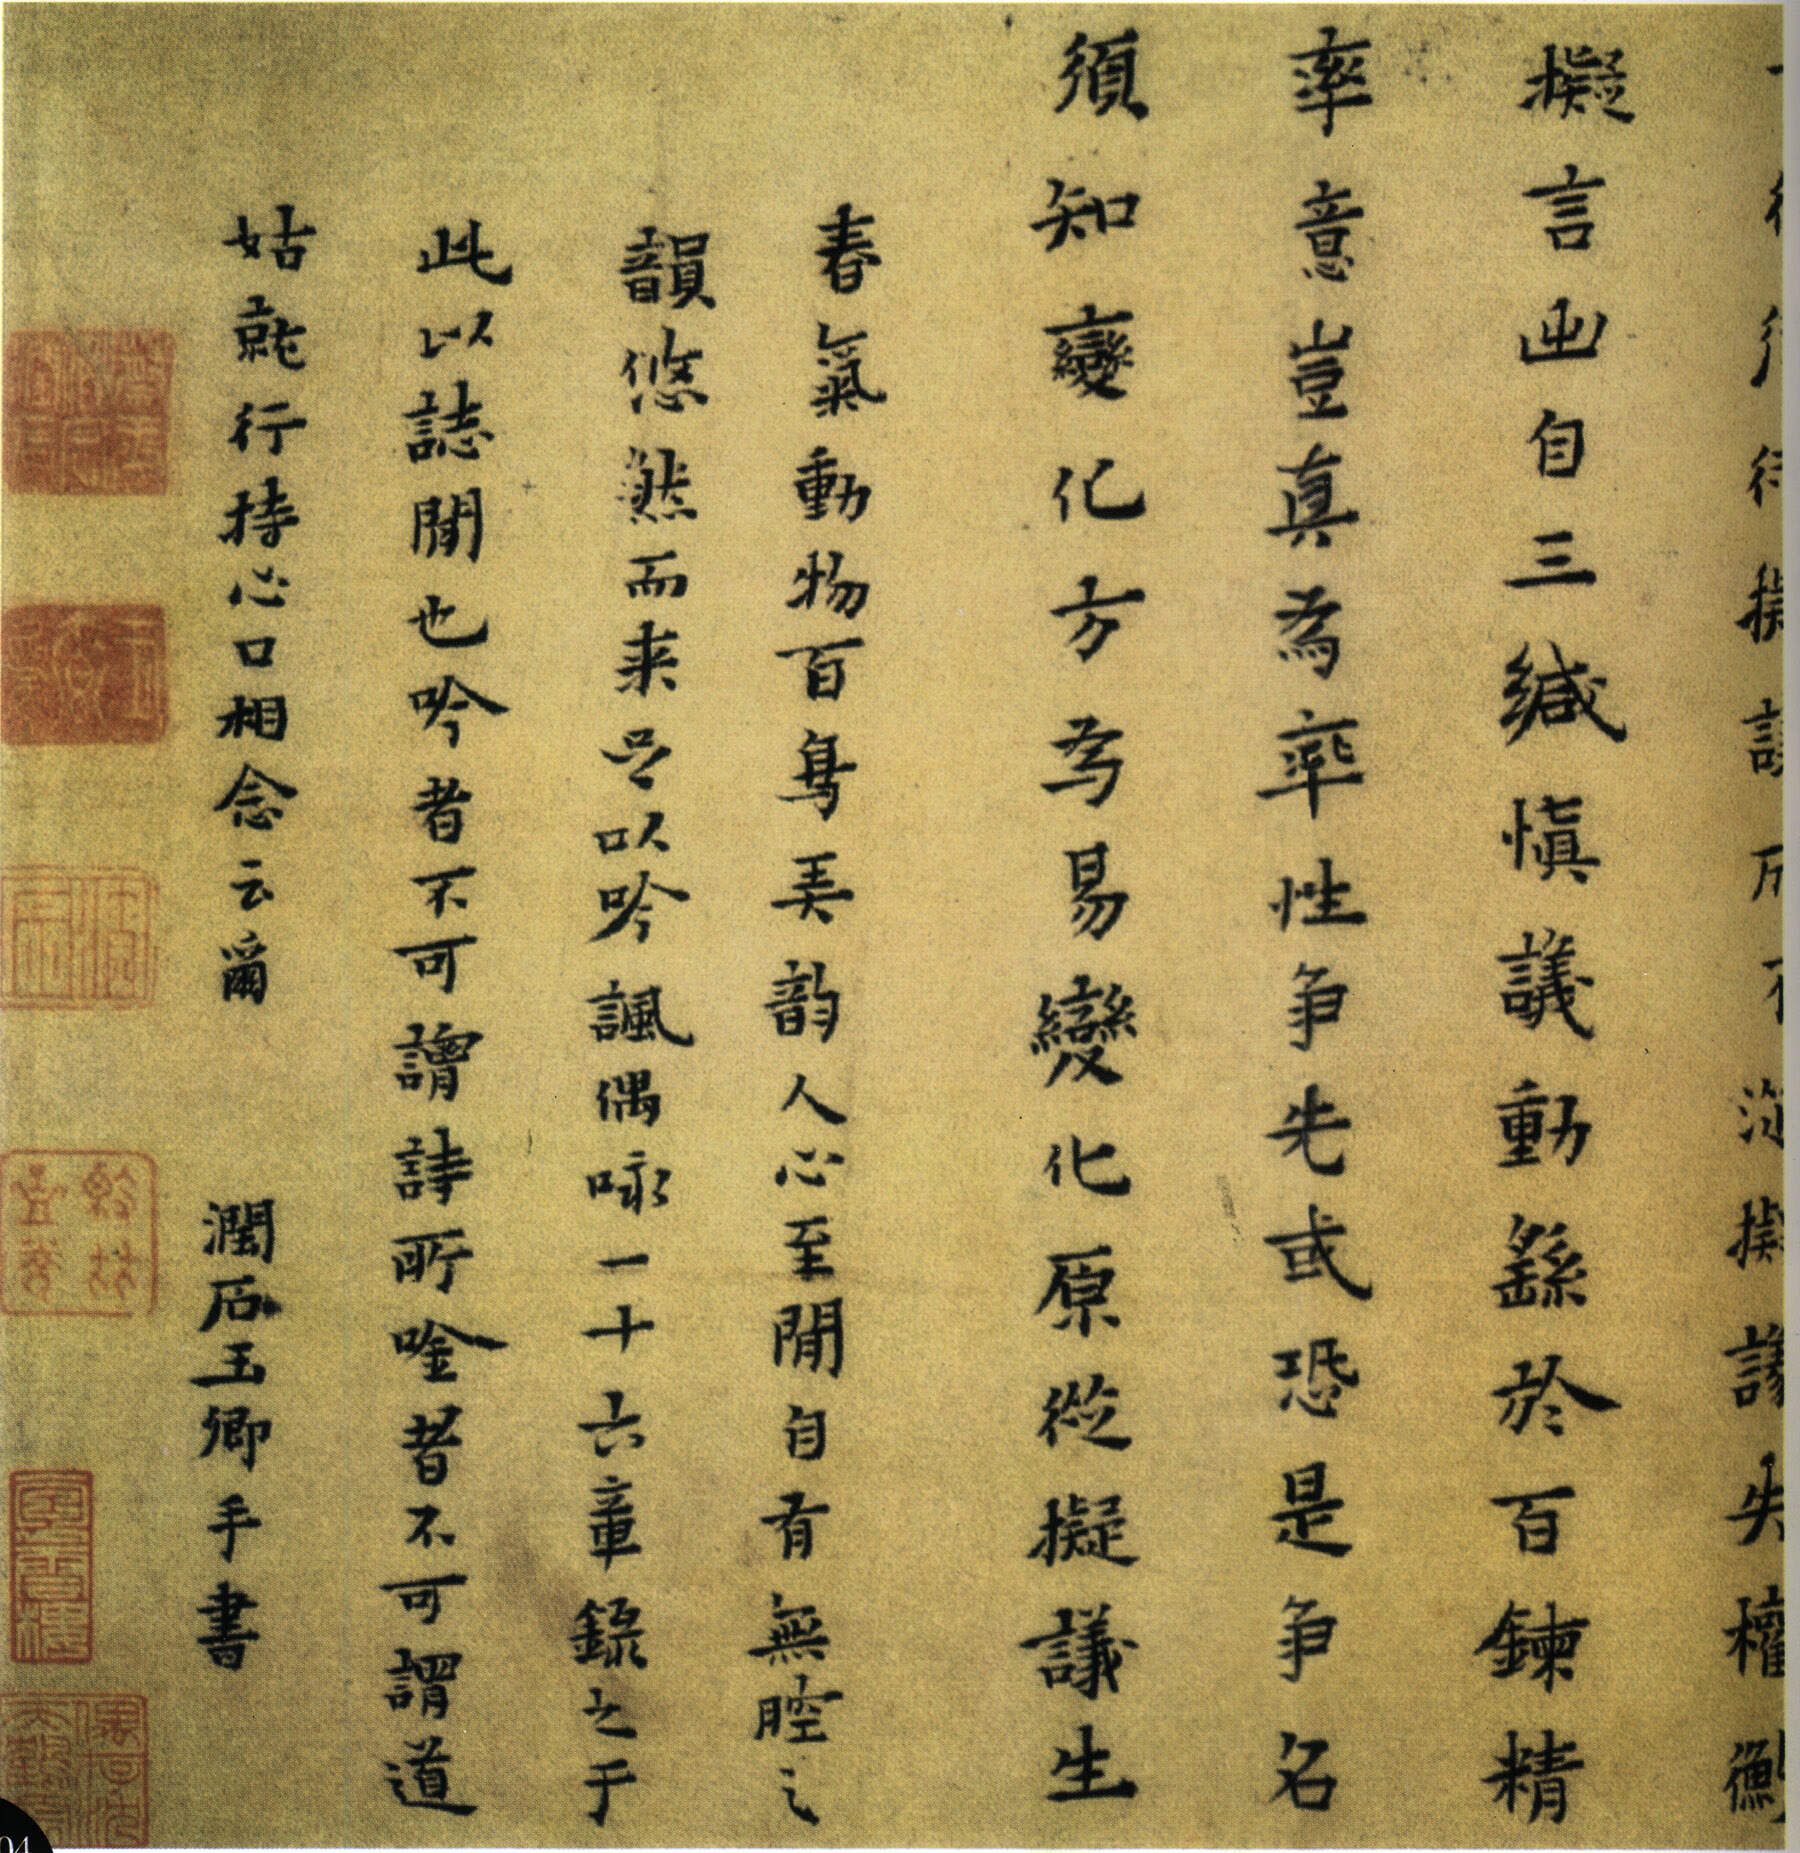 擬議所不擬議失權衡
擬言出自三緘慎議動繇於百鍊精
率意豈真為率性爭先或恐是爭名
須知變化方為易變化原從擬議生
春氣動物百鳥弄韵人心至閒自有無腔之
韻悠然而来足以吟諷偶咏一十六章錄之于
此以誌閒也吟者不可謂詩所唫者不可謂道
姑就行持心口相念云爾 潤石玉卿手書
04